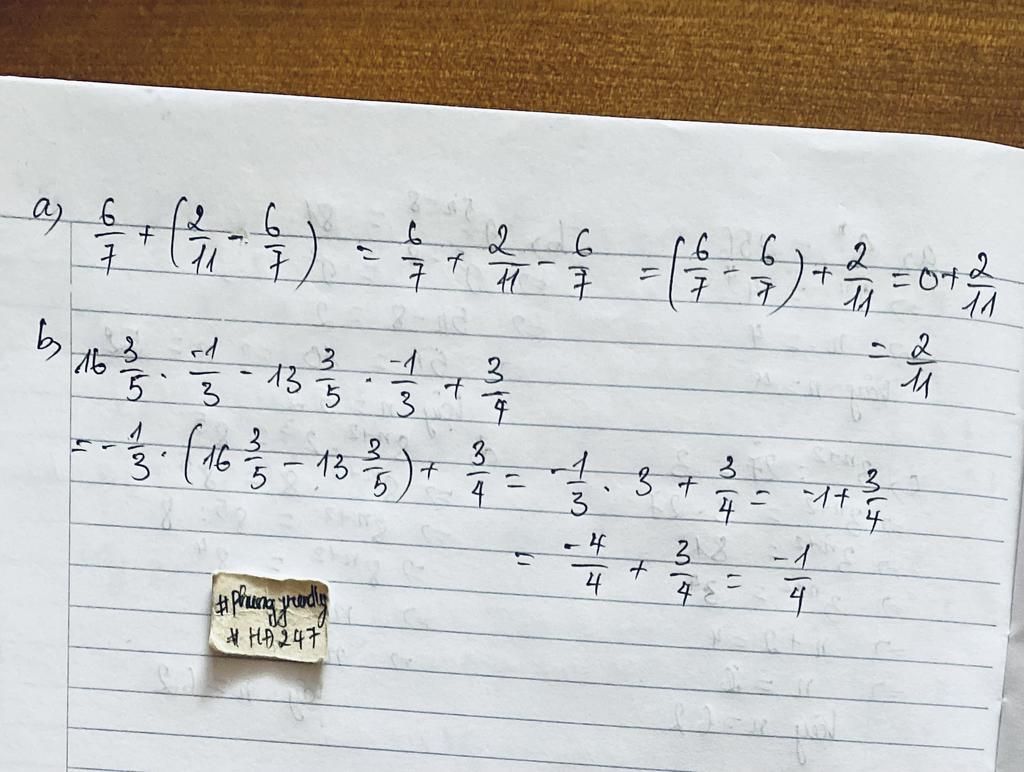 a) 6/7 + (2/11 - 6/7) = 6/7 + 2/11 - 6/7 = (6/7 - 6/7) + 2/11 = 0 + 2/11
= 2/11
b) 16 3/5 . -1/3 - 13 3/5 . -1/3 + 3/4
= -1/3 . (16 3/5 - 13 3/5) + 3/4 = -1/3 . 3 + 3/4 = -1 + 3/4
= -4/4 + 3/4 = -1/4
# HD247